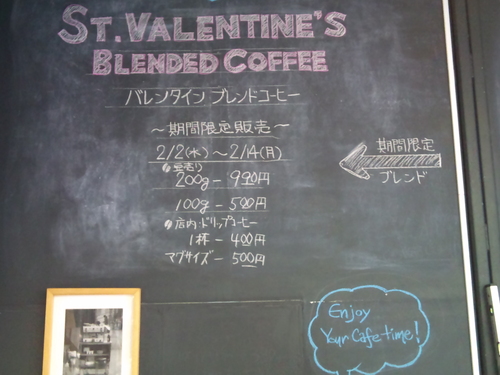 ST. VALENTINE'S
BLENDED COFFEE
バレンタイン ブレンドコーヒー
〜期間限定販売〜
2/2(水)〜2/14(月)
豆売り
200g - 900円
100g - 500円
店内:ドリップコーヒー
1杯 - 400円
マグサイズ - 500円
期間限定
ブレンド
Enjoy
Your Cafe time!